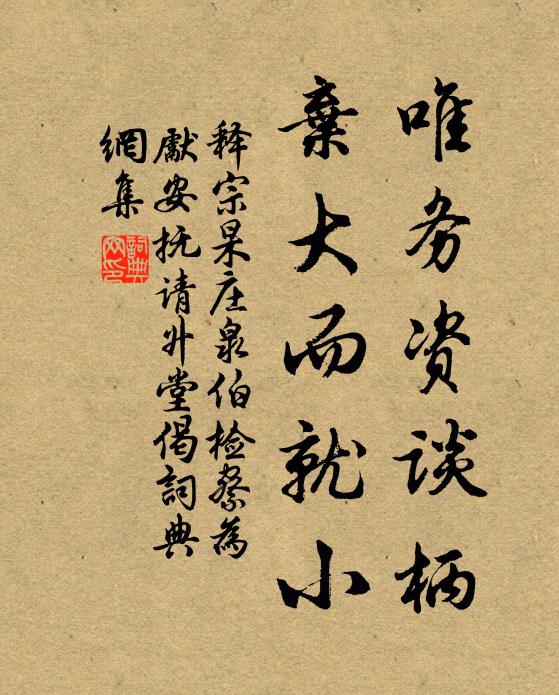 唯务资谈柄
棄大而就小
释宗杲庄泉伯检察為
獻安抚请升堂偈詞典
網集
詞典網印